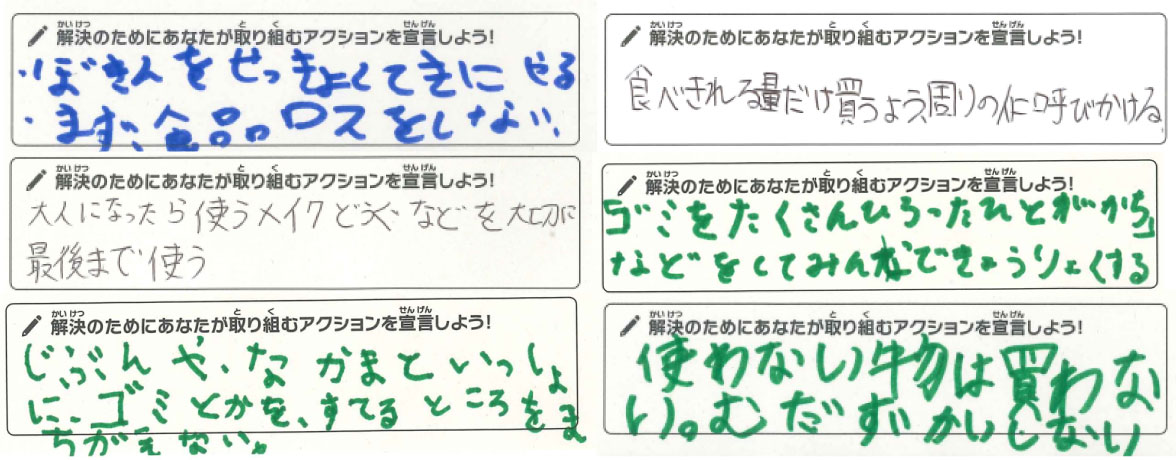 解決のためにあなたが取り組むアクションを宣言しよう!
・ぼきんをせっきょくてきにやる
・まず、食品ロスをしない、
解決のためにあなたが取り組むアクションを宣言しよう!
大人になったら使うメイクどうぐなどを大切に
最後まで使う
解決のためにあなたが取り組むアクションを宣言しよう!
じぶんや、なかまといっしょ
に、ゴミとかを、すてるところをま
ちがえない。
解決のためにあなたが取り組むアクションを宣言しよう!
食べきれる量だけ買うよう周りの人に呼びかける
解決のためにあなたが取り組むアクションを宣言しよう!
ゴミをたくさんひろったひとがかち」
などをしてみんなできょうりょくする
解決のためにあなたが取り組むアクションを宣言しよう!
使わない物は買わな
い。むだずかいしない